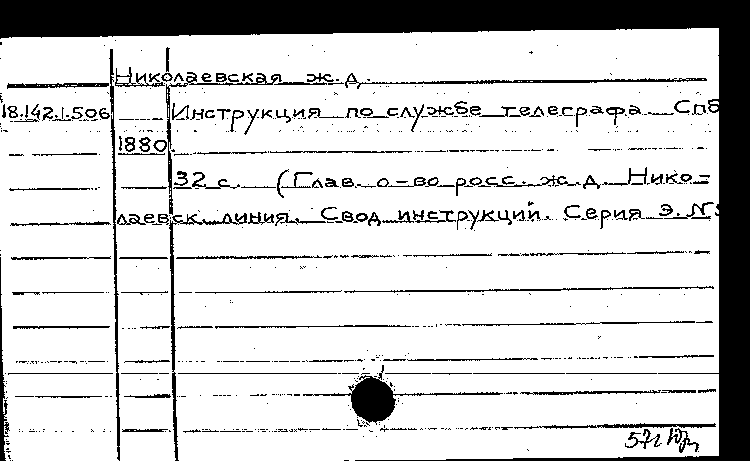 Николаевская ж.д.
18.142.1.506 Инструкция по службе телеграфа. Спб
1880
32 с. (Глав. о-во росс. ж.д. Нико-
лаевск. линия. Свод инструкций. Серия Э. №